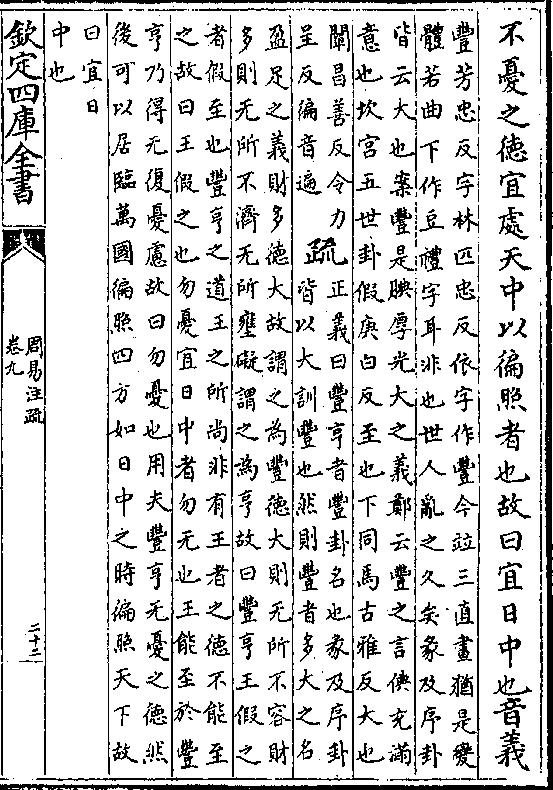 不憂之德宜處天中以徧照者也故曰宜日中也音義
豐芳忠反字林匹忠反依字作豐今竝三直畫猶是變
體若曲下作豆禮字耳非也世人亂之久矣彖及序卦
皆云大也案豐是腆厚光大之義鄭云豐之言倎充滿
意也坎宮五世卦假庚白反至也下同馬古雅反大也
闡昌善反令力
呈反徧音遍
疏
正義曰豐亨者豐卦名也彖及序卦
皆以大訓豐也然則豐者多大之名
盈足之義財多德大故謂之為豐德大則无所不容財
多則无所不濟无所壅礙謂之為亨故曰豐亨王假之
者假至也豐亨之道王之所尚非有王者之德不能至
之故曰王假之也勿憂宜日中者勿无也王能至於豐
亨乃得无復憂慮故曰勿憂也用夫豐亨无憂之德然
後可以居臨萬國徧照四方如日中之時徧照天下故
曰宜日
中也
欽定四庫全書
周易注疏
卷九
二十二